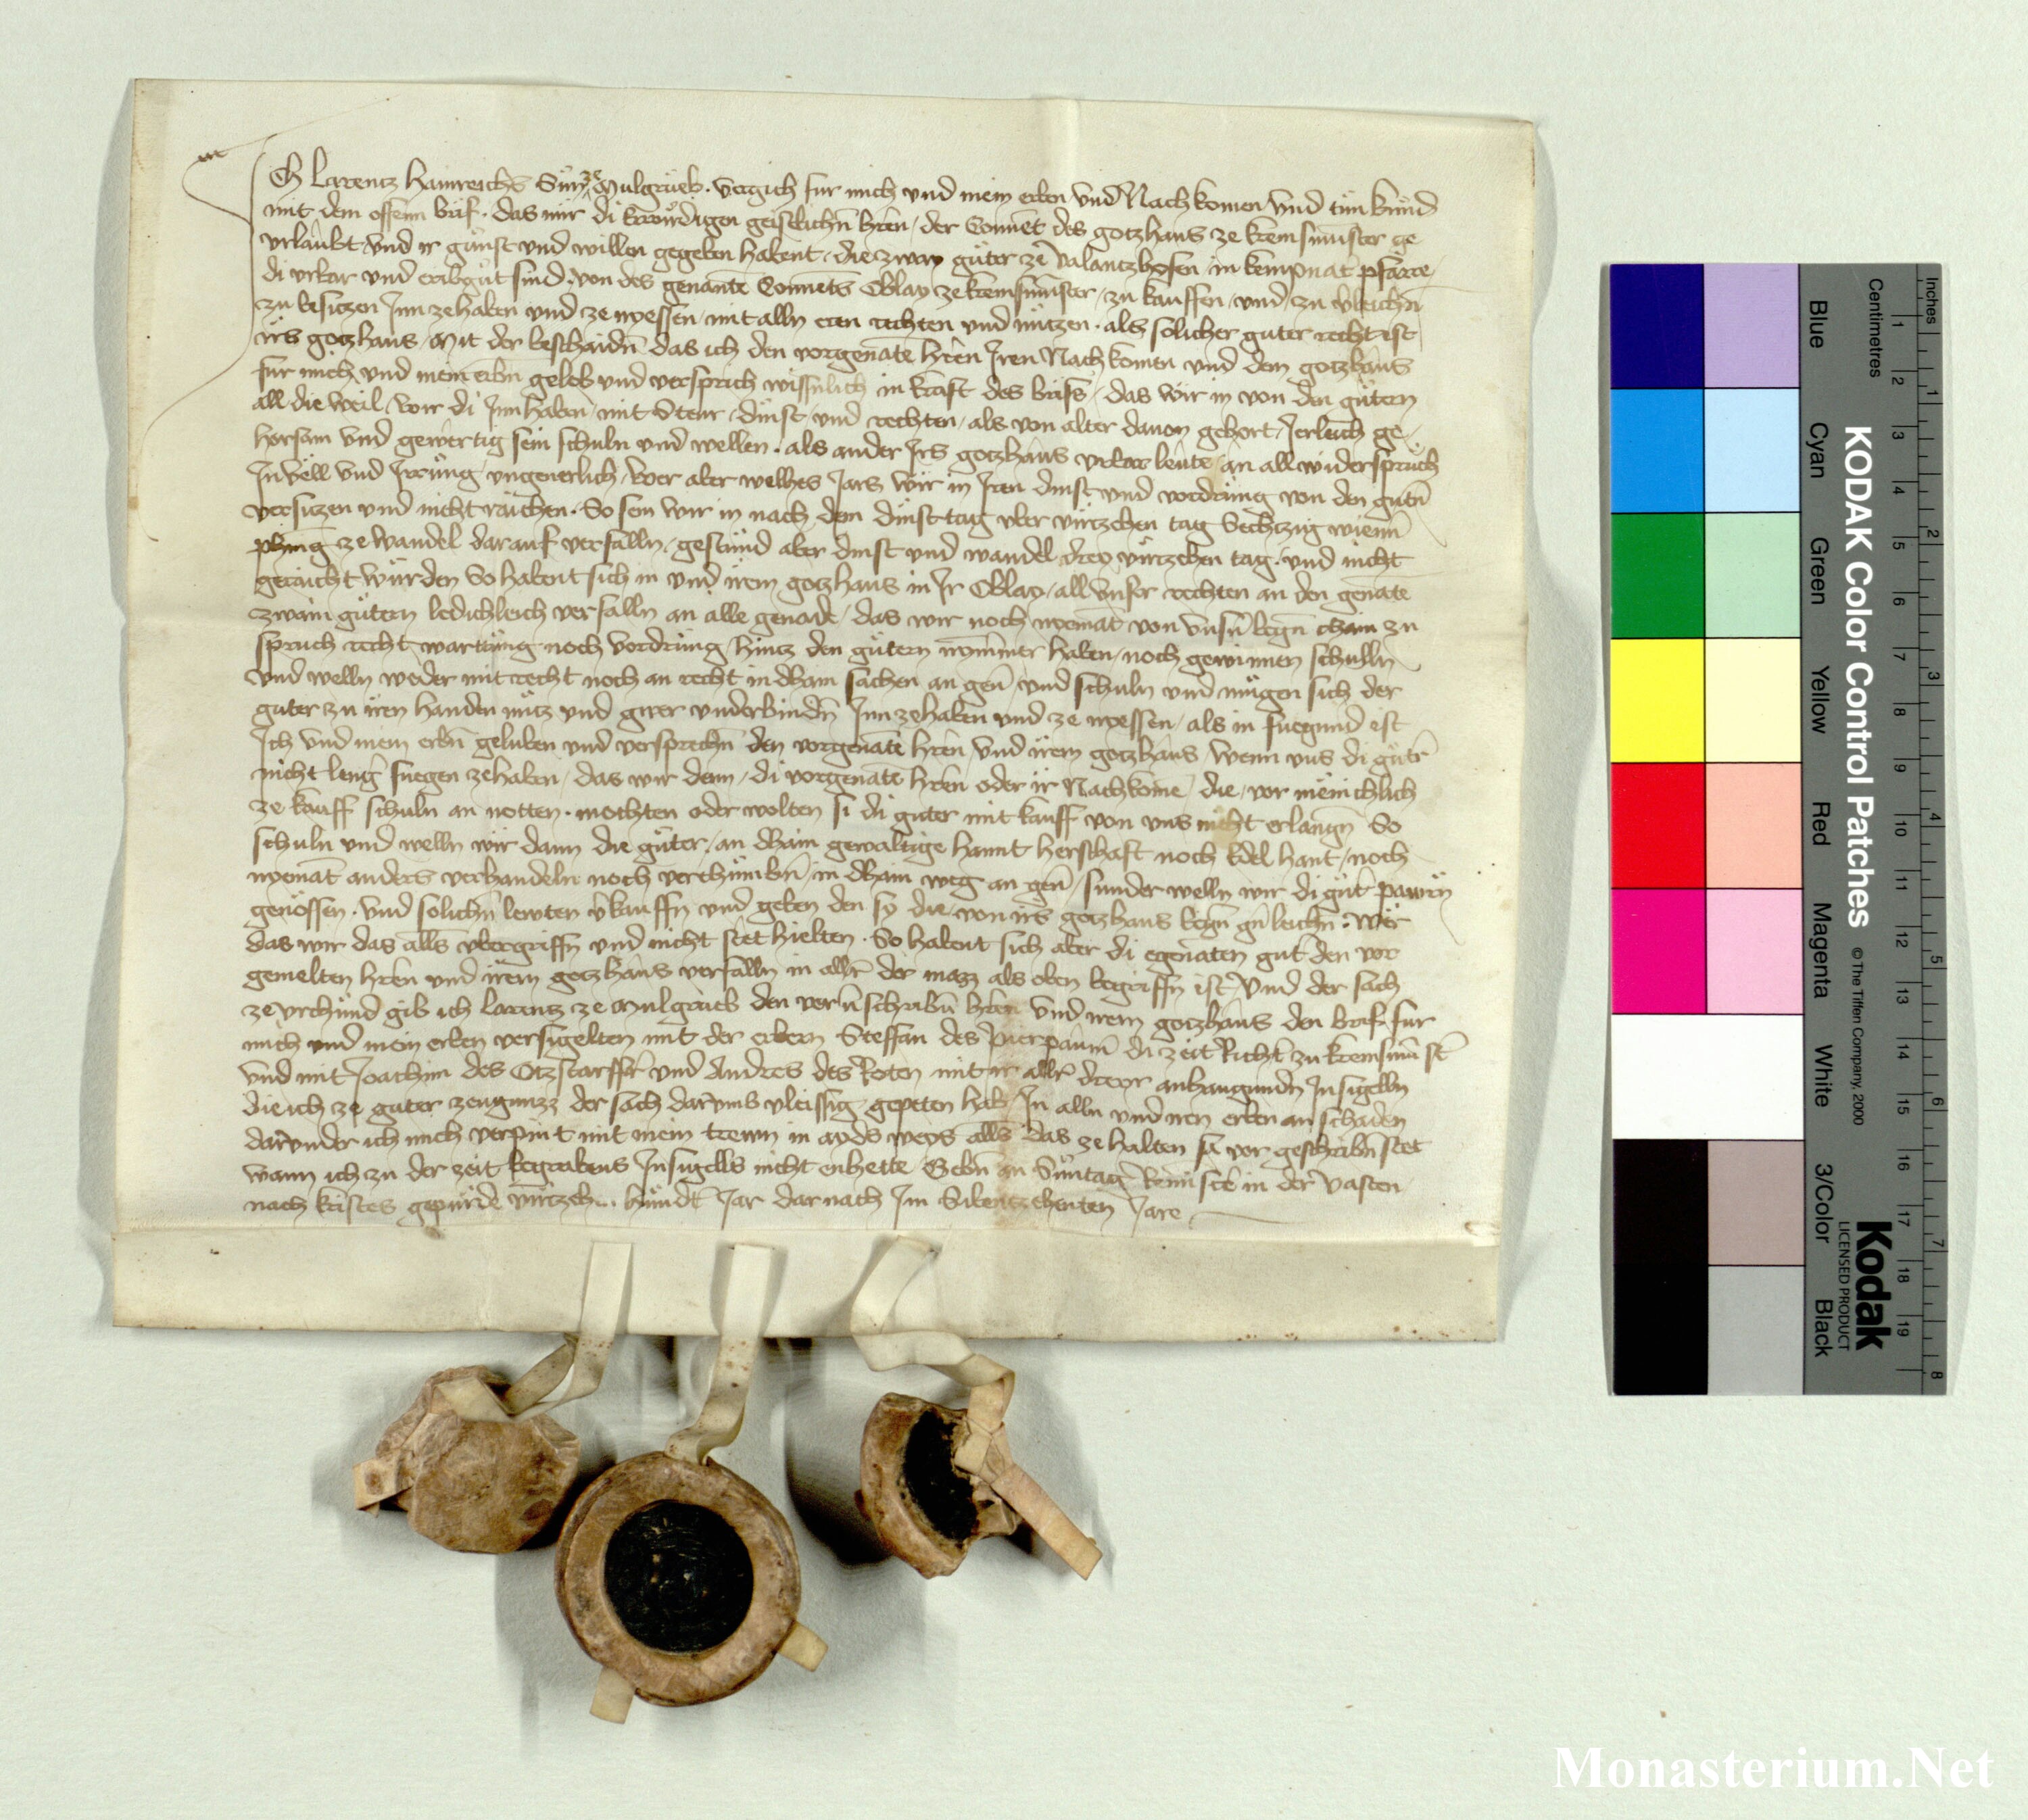 Ich Larentz Hainreichs Sun ze Mulgrueb. vergich fur mich und mein erben und Nachkomen und tun kund
mit dem offenn brif. das mir di Erwirdigen geistlichn hern der Conuet des gotzhaus ze kremsmunster ge
urlaubt und ir gunst und willen gegeben habent. die zway guter ze Valantzhofen in kempnat pfarre
di urbar und eribgut sind. von des genante Conuets Oblay ze kremsmunster zu kauffen und zu verleichn
zu besitzen Inn zehaben und ze nyessen mit alln eren rechten und nutzen. als solicher guter recht ist
irs gotzhaus. Mit der beschaidn das ich den vorgenate hern Iren Nachkomen und dem gotzhaus
fur mich und mein erbn gelob und versprich wissnlich in kraft des brifs das wir in von den gutern
all die weil wir di Innhaben mit Steur dinst und rechten als von alter dauon gehort Jerleich ge
horsam und gewertig sein schuln und wellen. als ander Irs gotzhaus urbar leute an all widerspruch
In Vell und Irrung ungeuerlich. Wer aber welhes Jars wir in Iren dinst und vordrung von den gutn
versitzen und nicht raichen. So sein wir in nach dem dinst tag uber virtzehen tag Sechtzig wienn
phing ze wandel darauf verfalln. gestund aber dinst und wandel drey virtzehen tag. und nicht
geraicht wurden So habent sich in und irem gotzhaus in Ir Oblay all unser rechten an den genate
zwain gutern ledichleich verfalln an alle genade das wir noch nyemat von unsn wegn chain zu
spruch recht wartung noch vordrung hintz den gutern nymmer haben noch gewinnen schulln
und welln weder mit recht noch an recht in dhain sachen an geu und schuln und mugen sich der
guter zu iren handen nutz und gwer underbindn Inn zehaben und ze nyessen als in fuegund ist
Ich und mein erbn geluben und versprechn den vorgenate hern und irem gotzhaus wenn uns di gutr
nicht leng fuegen zehaben das wir denn di vorgenate hern oder ir Nachkome die vor menichlich
ze kauff schuln an notten. mochten oder wolten si di guter mit kauff von uns nicht erlangn So
schuln und welln wir dann die guter an dhain gewaltige hannt herschaft noch Edel hant noch
nyemat anders verhandeln noch verchumbrn in dhain weg an geu sunder welln wir di gut pawrn
genossen. und solichn lewten vkauffn und geben den sy die von irs gotzhaus wegn gn leichn. Wer
das wir das alls ubergriffn und nicht stet hielten. So habent sich aber di egenaten gut den vor
gemelten hern und irem gotzhaus verfalln in allr der mazz als oben begriffn ist. Und der sach
ze urchund gib ich Larentz ze Mulgrueb den vorschribn hern und irem gotzhaus den brif fur
mich und mein erben versigelten mit der erbern Steffan des Pierpaum di zeit Richt zu kremsmust
und mit Joachim des Otzstarffer und Andres des Roten mit ir allr dreyr anhangundn Insigelln
die ich ze guter zeugnuzz der sach darumb vleissig gepeten hab In alln und iren erben an schaden
darunder ich mich verpint mit mein trewn in ayds weys alls das ze halten so vor geschribn stet
wann ich zu der zeit begrabens Insigells nicht enhette. Gebn an Suntag Reminiscere in der Vasten
nach kristes gepurde virtzehen hundt Jar darnach Im Sibentzehenten Jare
Monasterium.Net
KODAK Color Control Patches
© The Tiffen Company, 2000
Kodak
LICENSED PRODUCT
Blue
Cyan
Green
Yellow
Red
Magenta
White
3/Color
Black
Inches
Centimetres
1 2 3 4 5 6 7 8 9 10 11 12 13 14 15 16 17 18 19
1 2 3 4 5 6 7 8